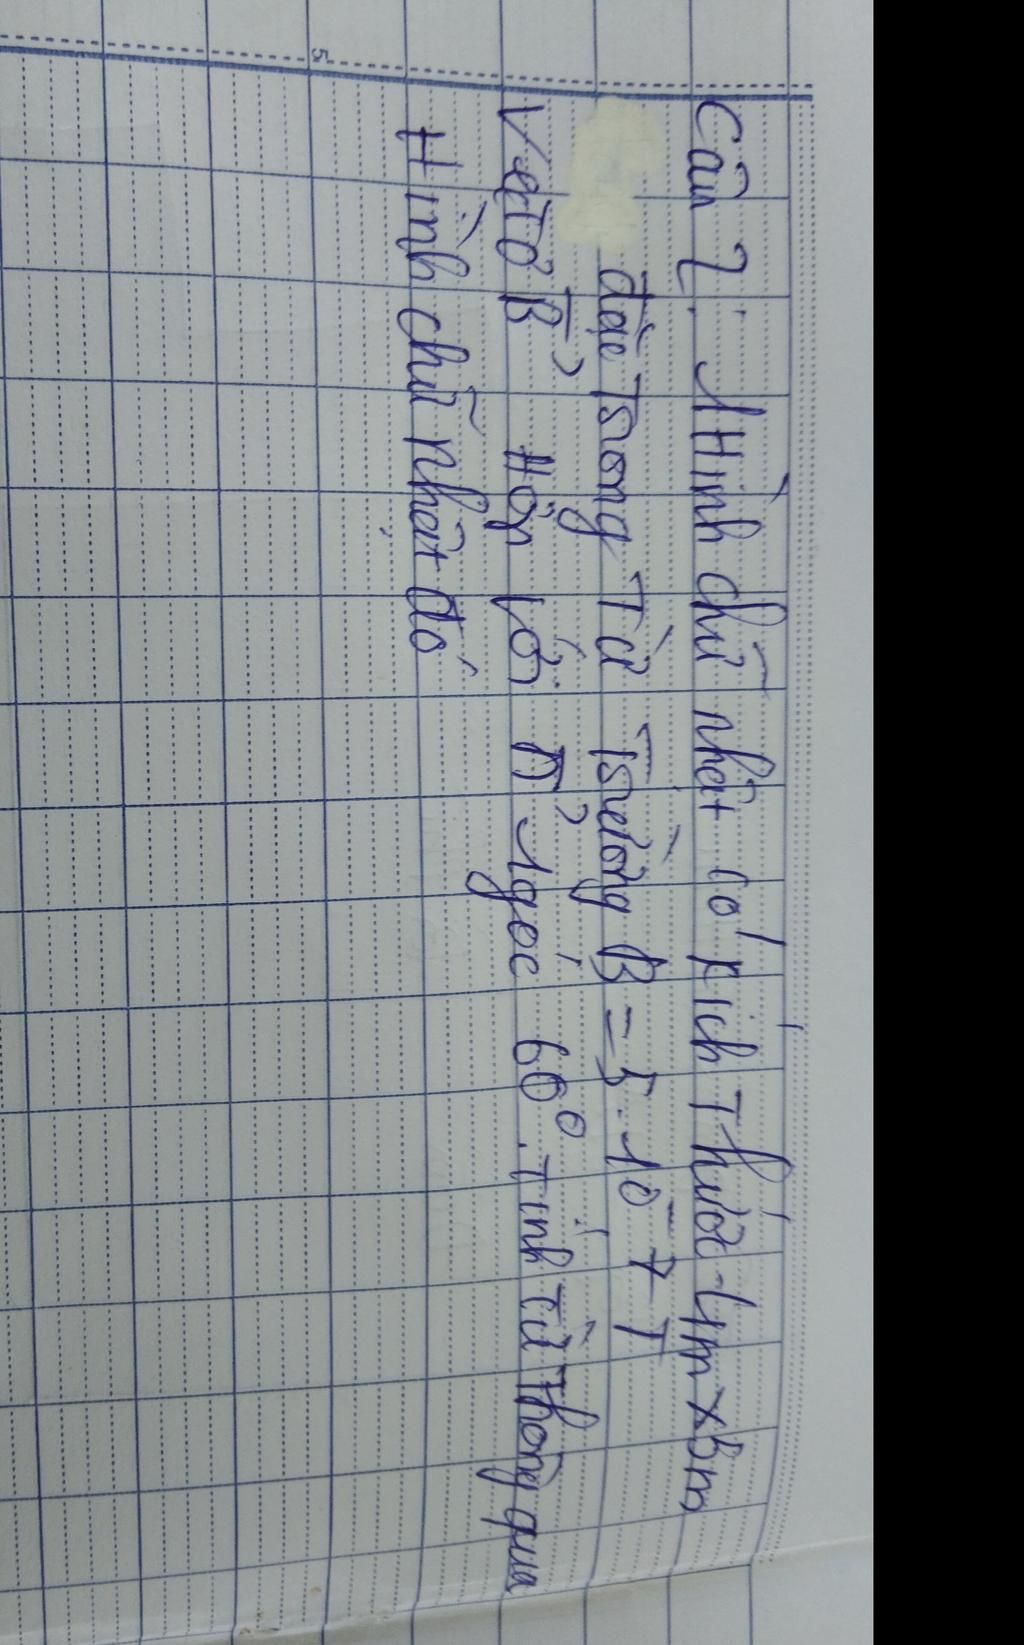 Câu 7: 1 Hình chữ nhật có kích Thước 4m x 3m
đặt Trong Từ Trường B = 5.10⁻⁷ T
Vectơ B⃗ Hợp với n⃗ 1 góc 60⁰. Tính từ Thông qua
Hình chữ nhật đó
5